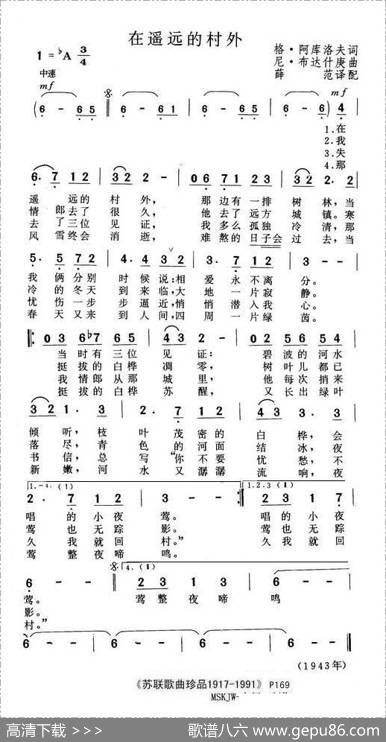 在遥远的村外
1=♭A 3/4
格·阿库洛夫词
尼·布达什庚曲
薛 范译配
中速
mf
(6 - 6 5 6 - - 6 - 6 5 6 -) 4
1.在
2.我
3.失
4.那
6. 7 1 2 3 2 2 - 0 2 3 4 6 7 1 2 3 1
遥 远的 村 外, 那边有一排 树 林,当
情 郎去了 很 久, 他去了远方 城 镇。寒
去 了三位 见 证, 我多么孤独 冷 清,那
风 雪终会 消 逝, 难熬的日子会 过 去,当
5. 5 7 1 2 3 4 3 2. 7 1 2 6 - -
我 俩分别 时 候说:相 爱永不离 分。
冷 的冬天 到 来临大 地一片寂 静。
忧 伤一步 步 逼人悄 悄潜入我 心。
春 天又来 到 近间四 周一片绿 茵。
0 3 6 ♭7 6 4 3 - 0 2 3 4 3 2
当时有三位 见 证: 碧波的河水
挺拔的白桦 凋 零, 树叶儿都已
挺拔的情郎从那 城 里, 他每次来
挺拔的白桦 苏 醒, 又长出绿叶
3 2 1. 1 2. 7 1 2 4 3. 3
倾听,枝 叶茂密的 白桦,会
落尽,青 色的河面 结冰,夜
书信,总 写“你不要 忧愁,不
新嫩,河 水又潺潺 流响,夜
1.-4.(1)
2. 7 1 2 6 - -
唱 的小夜 莺。
莺 也无踪 影。
久 我就回 村。”
莺 整夜啼 鸣。
1.2.3(1)
2. 1 2 3 7
唱 的小夜
莺 也无踪
久 我就回
6 - -
莺。
影。
村。”
4.(1)
2 1 2 3 3 6 - -
莺整夜啼 鸣
6 - - 6 - - 6 - - 6 - -
(1943年)
《苏联歌曲珍品1917-1991》 P169
MSKJW-
高清下载 | 歌谱八六 www.gepu86.com